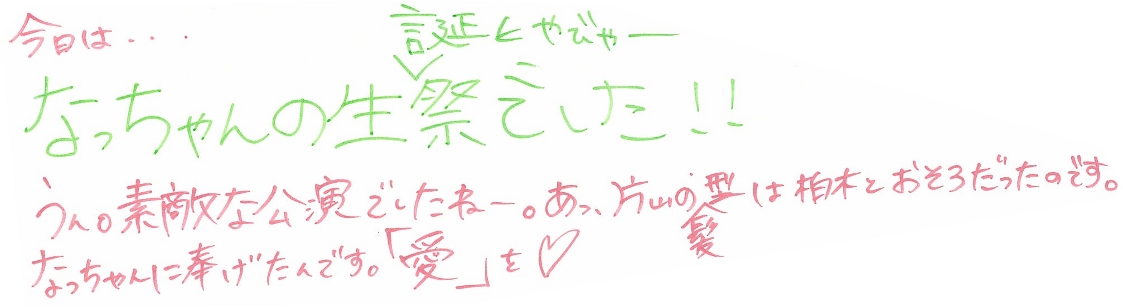 今日は・・・
誕延とやびゃー
なっちゃんの生祭でした!!
うん。素敵な公演でしたねー。あっ、片山の髪型は柏木とおそろだったのです。
なっちゃんに奉げたんです。「愛」を♡